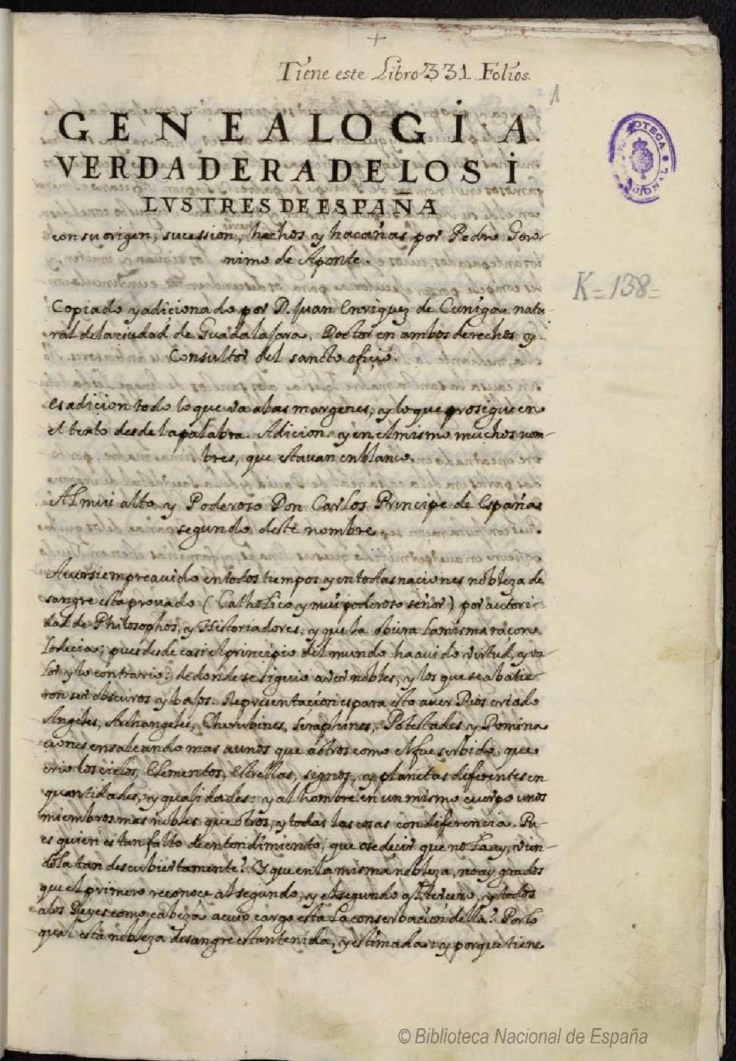 Tiene este Libro 331 Folios.
1
GENEALOGIA
VERDADERA DE LOS I
LVSTRES DE ESPAÑA
con su origen, sucession, hechos y haçañas por Pedro Gero-
nimo de Aponte.
K=138=
Copiado y adicionado por D. Juan Enriquez de Cuniga natu-
ral de la ciudad de Guadalajara, Doctor en ambos derechos y
Consultor del sancto oficio.
Es adicion todo lo que va a las margenes, y lo que prosigue en
el texto desde la palabra. Adicion, y en el mismo muchos nom-
bres, que estauan en blanco.
Al mui alto y Poderoso Don Carlos Principe de España
segundo deste nombre.
Auer siempre auido en todos tiempos y en todas naciones nobleza de
sangre esta prouado (Catholico y mui poderoso señor) por auctori-
dad de Philosophos, y Historiadores, y que la obiera la misma raçon
lo decia; pues desde casi el principio del mundo ha auido virtud, y va-
lor y lo contrario; de donde se siguio auer nobles, y los que se abatie-
ron ser obscuros y bajos. Representacion es para esto auer Dios criado
Angeles, Archangeles, Cherubines, Seraphines, Potestades y Domina
ciones ensalçando mas a unos que a otros como el fue serbido, que
crio los cielos, Elementos, estrellas, signos, y planetas diferentes en
quantidades, y qualidades: y al hombre en un mismo cuerpo unos
miembros mas nobles que otros, y todas las cosas con diferencia. Pu-
es quien es tan falto de entendimiento, que ose decir que no la ay, vien-
dola tan descubiertamente? Y que en la misma nobleza, no ay grados
que el primero reconoce al segundo, y el segundo al tercero, y todos
a los Reyes como cabeza a cuyo cargo esta la conserbacion della? Por lo
qual esta nobleza de sangre es tan tenida, y estimada: y porque tiene
© Biblioteca Nacional de España